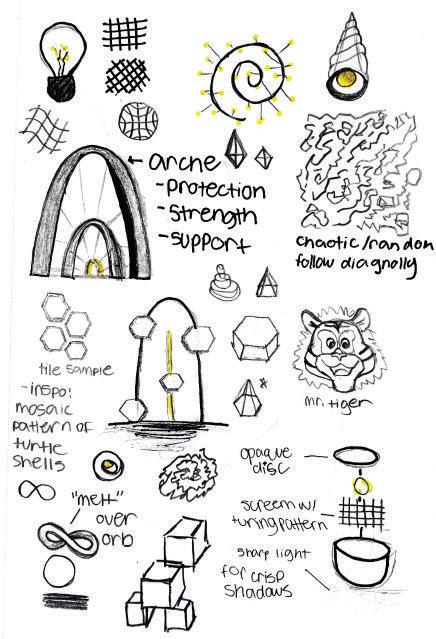 arche
- protection
- strength
- support
chaotic/random
follow diagnolly
tile sample
- inspo:
mosaic
pattern of
turtle
shells
mr. tiger
"melt"
over
orb
opaque
disc
screen w/
turing pattern
sharp light
for crisp
shadows